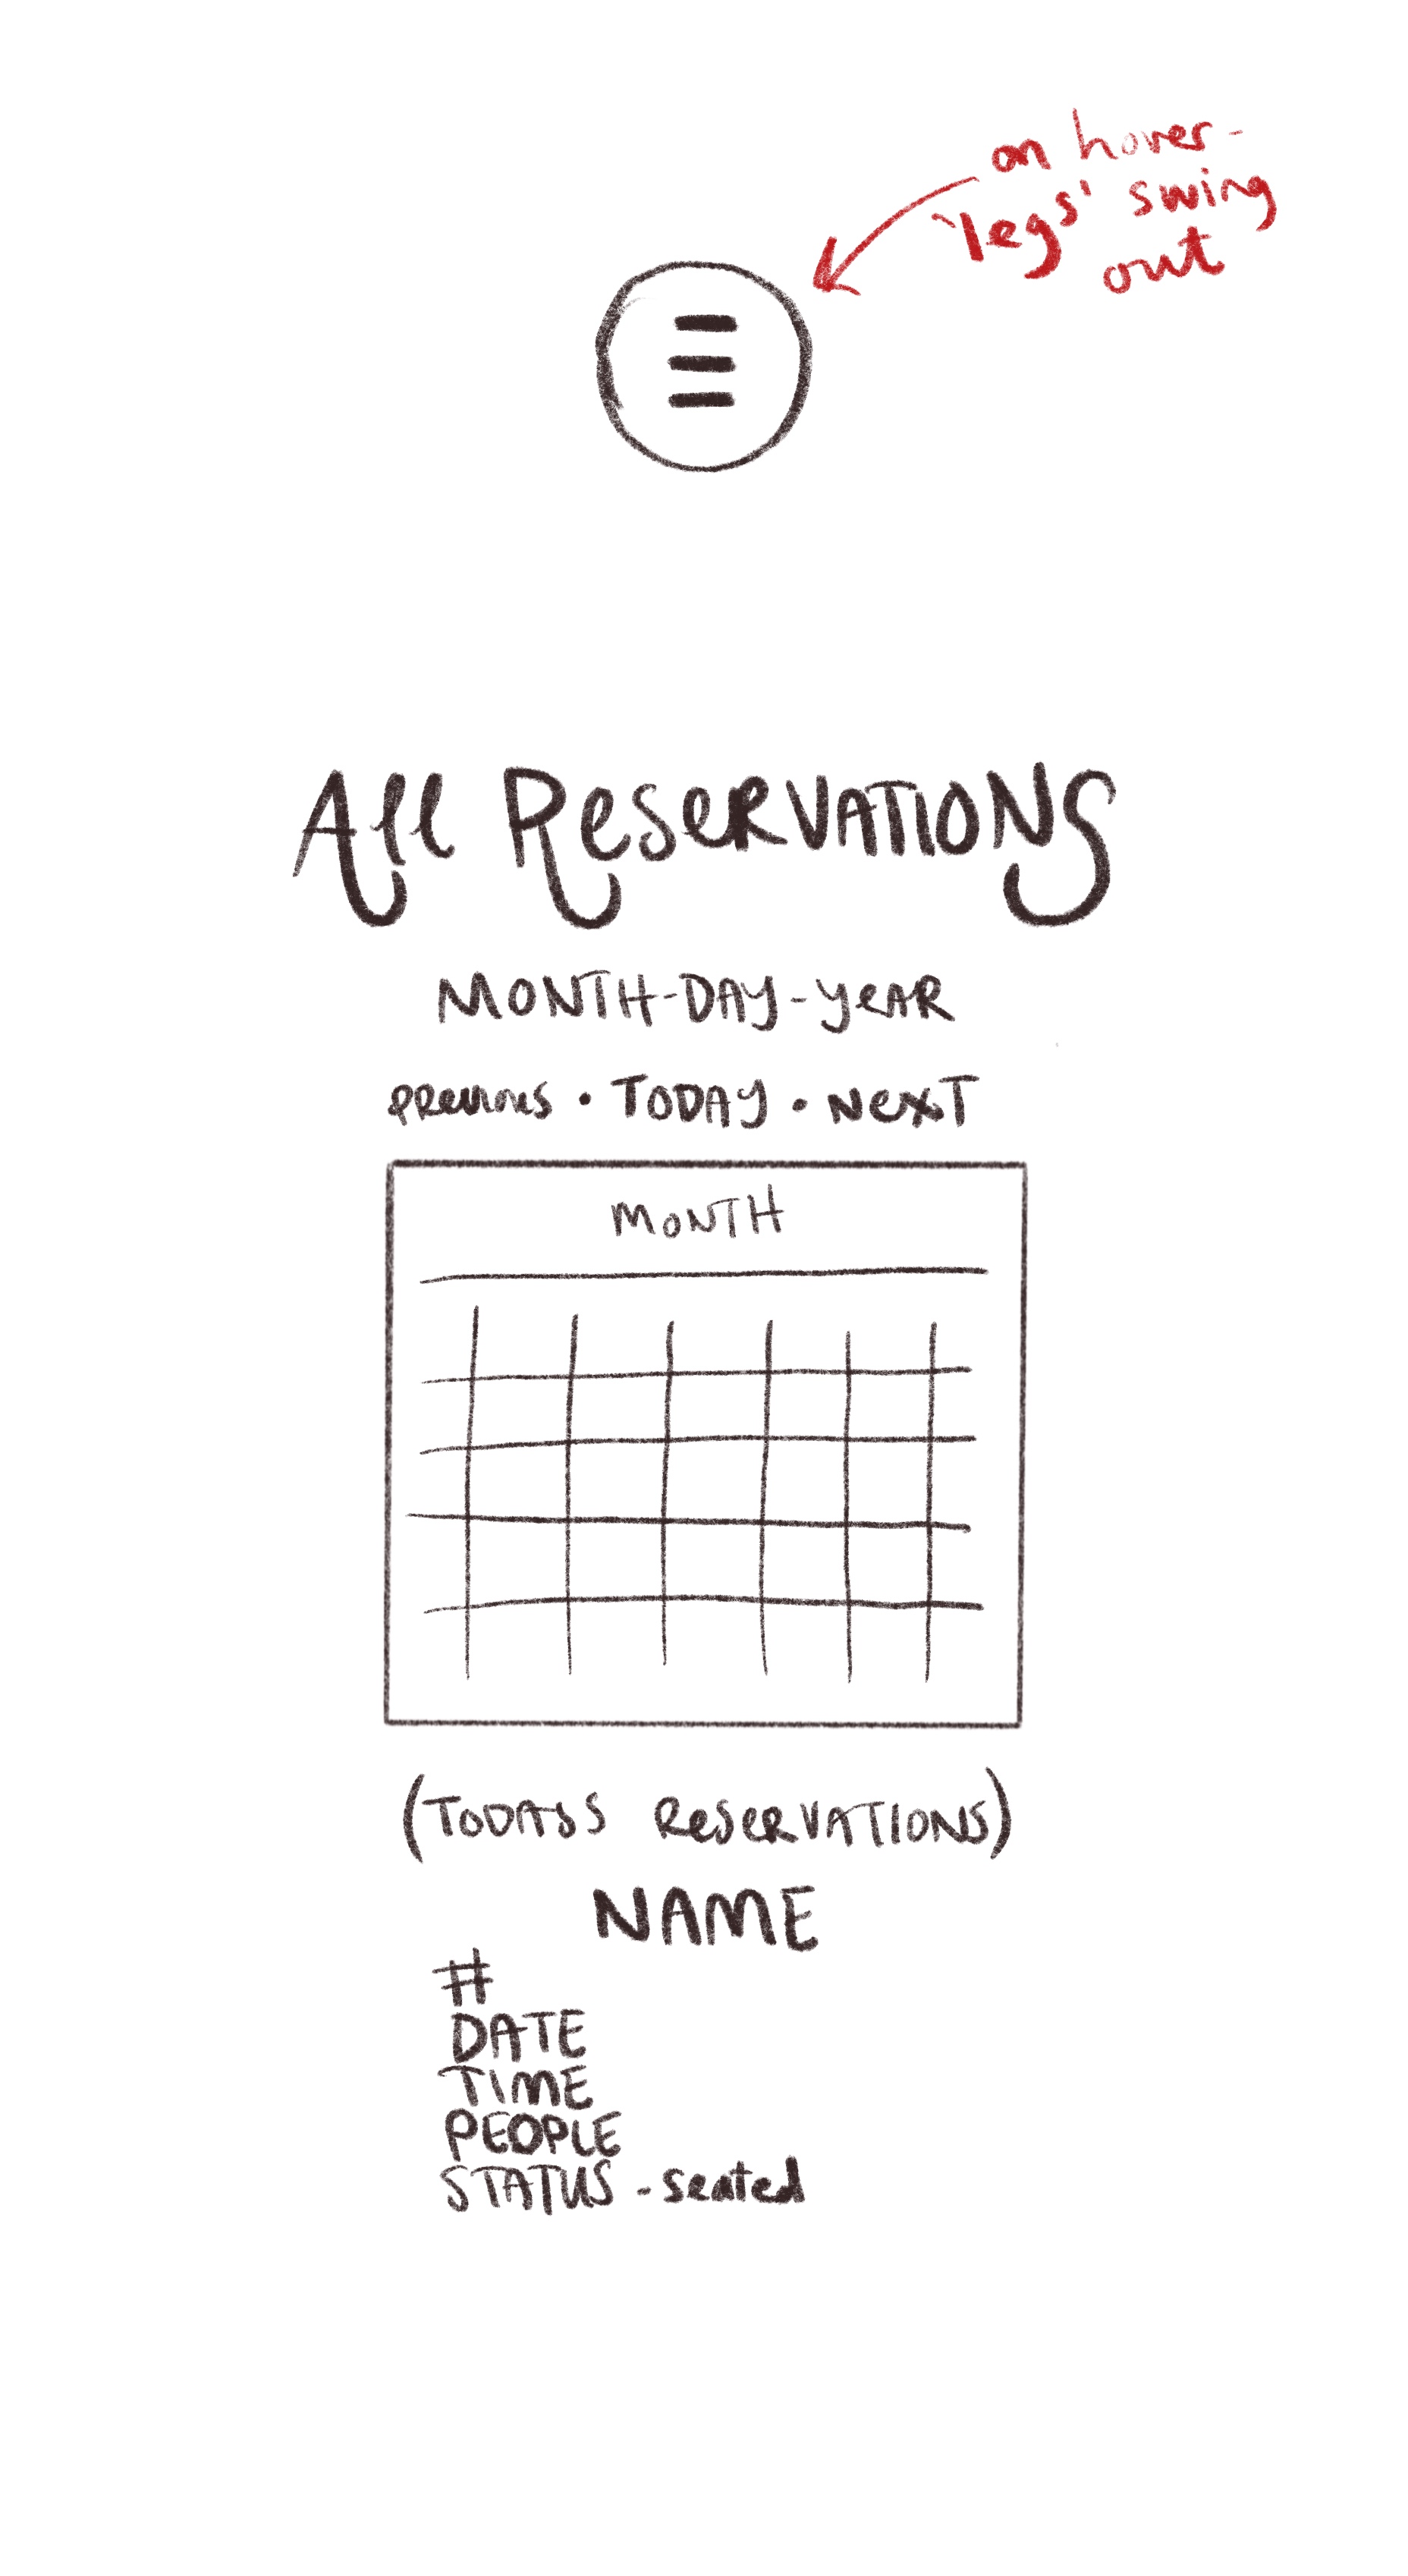 on hover-
'legs' swing
out
All Reservations
MONTH-DAY-YEAR
PREVIOUS • TODAY • NEXT
MONTH
(TODAYS RESERVATIONS)
NAME
#
DATE
TIME
PEOPLE
STATUS - seated